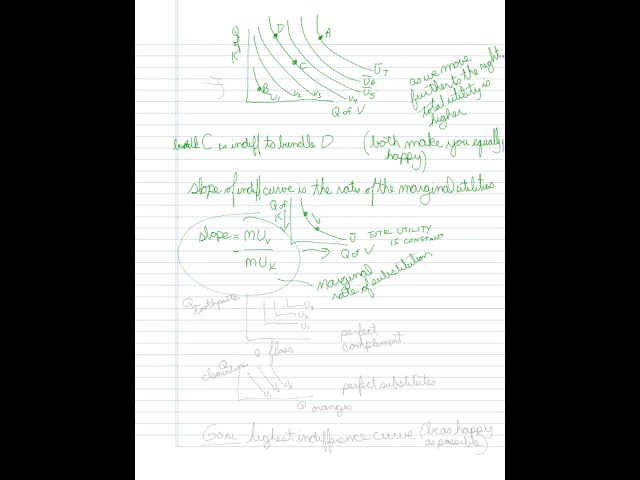 Q of K
D
A
C
B
U1 U2 U3 U4 U5 U6 U7
Q of V
as we move
further to the right,
total utility is
higher
bundle C is indiff to bundle D (both make you equally
happy)
slope of indiff curve is the ratio of the marginal utilities
Q of K
U
TOTAL UTILITY
IS CONSTANT
Q of V
slope = MUv
- MUK
marginal
rate of substitution
Q toothpaste
U3
U2
U1
Q floss
perfect
complement
Q clementines
U1 U2 U3
Q oranges
perfect substitutes
GOAL highest indifference curve (be as happy
as possible)